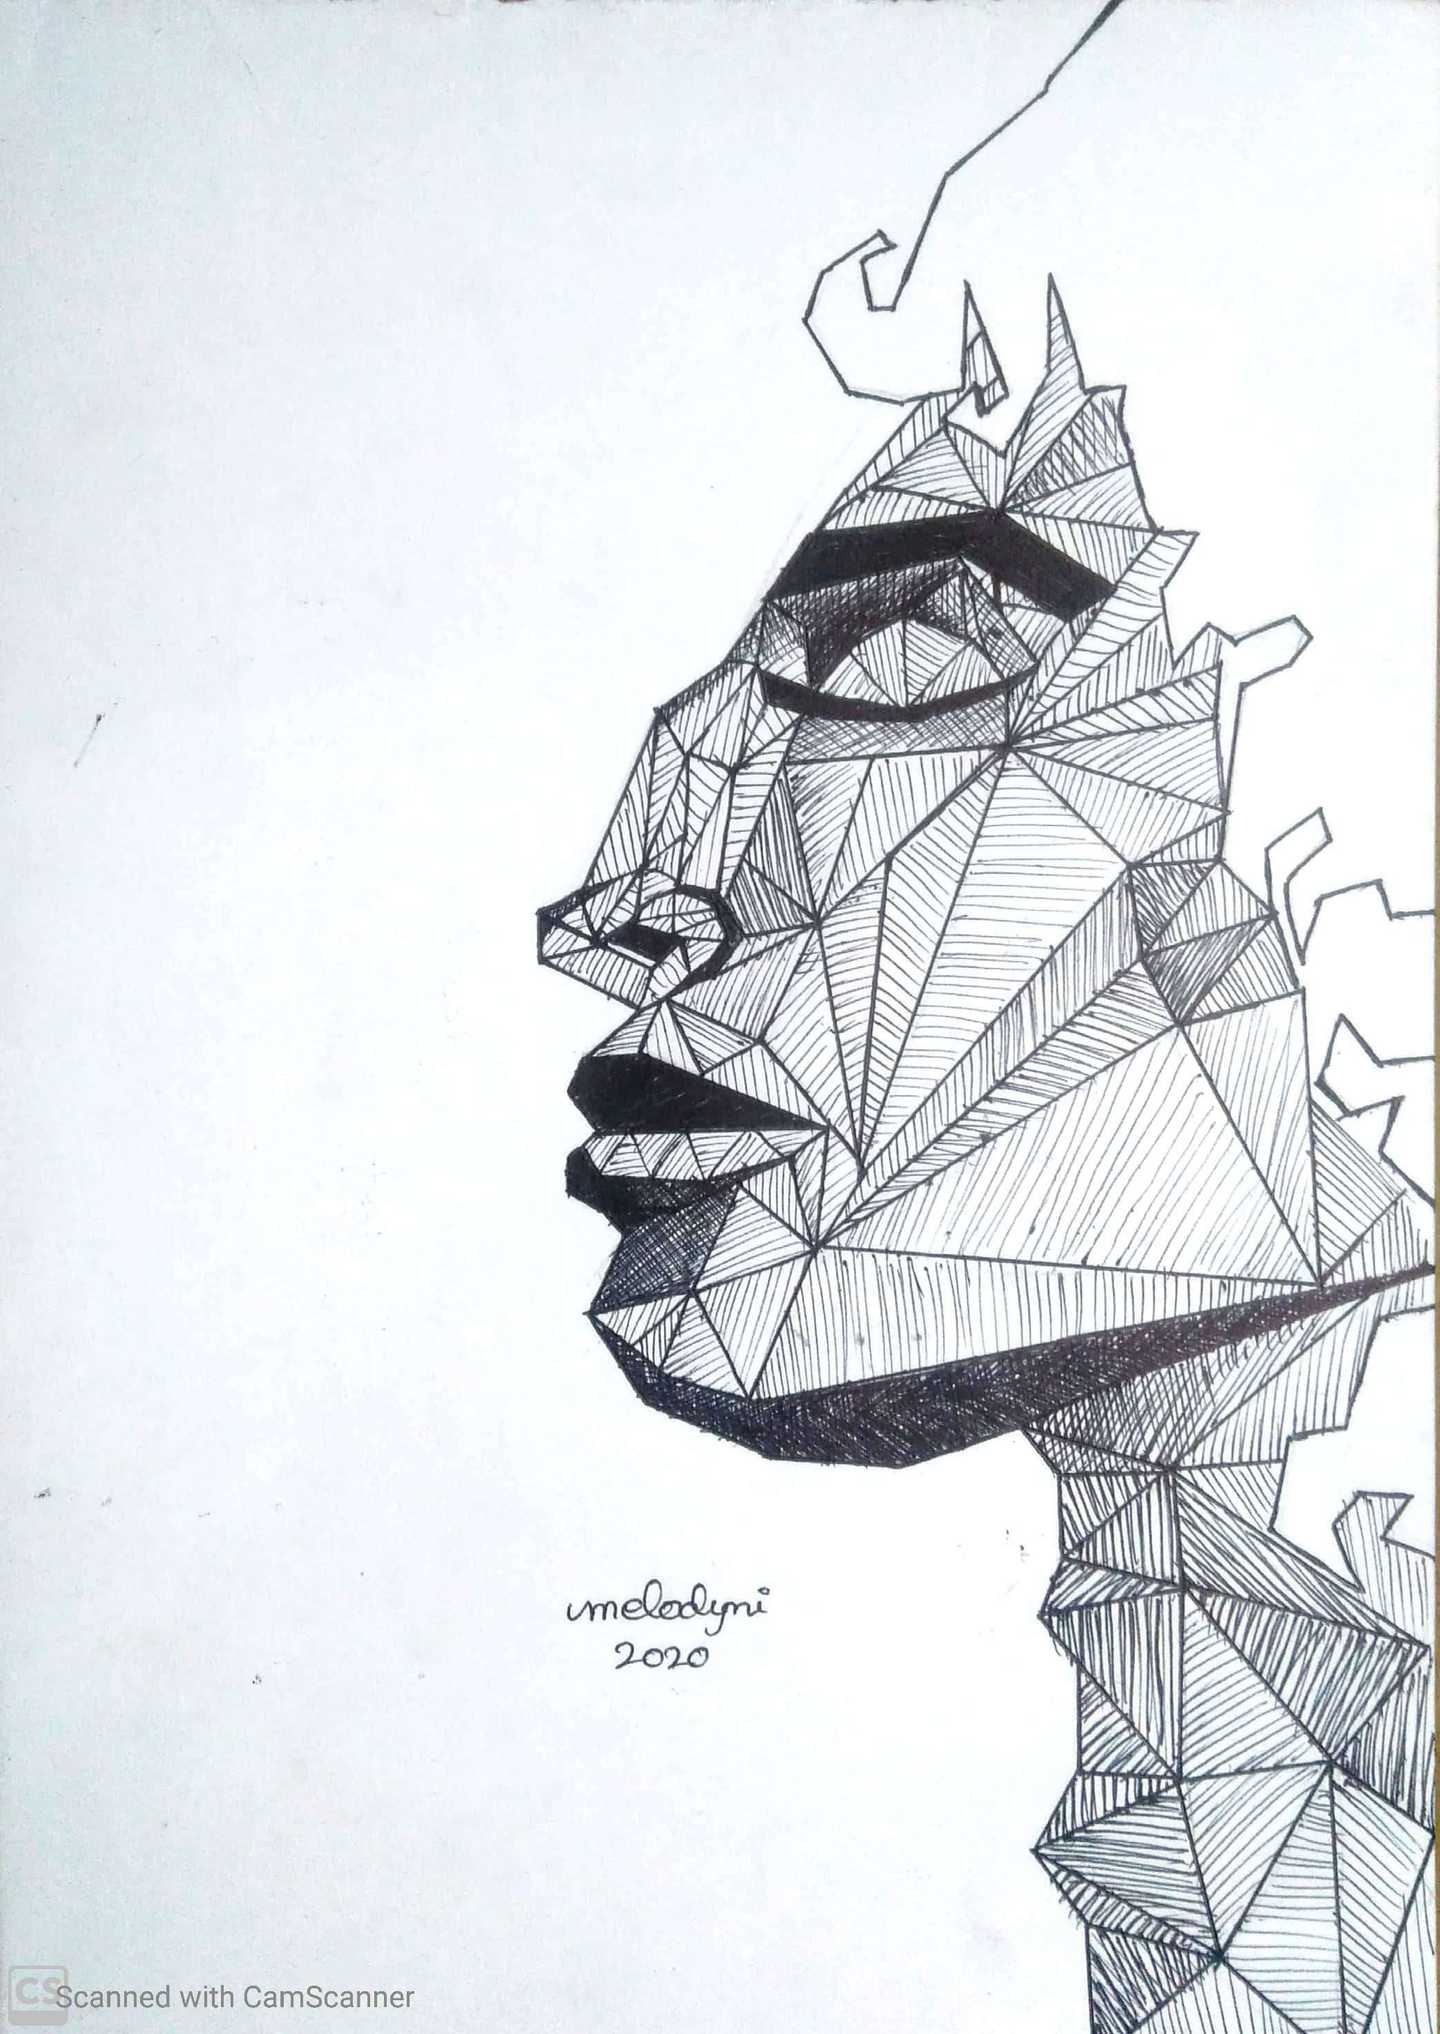 melodyni
2020
CS Scanned with CamScanner